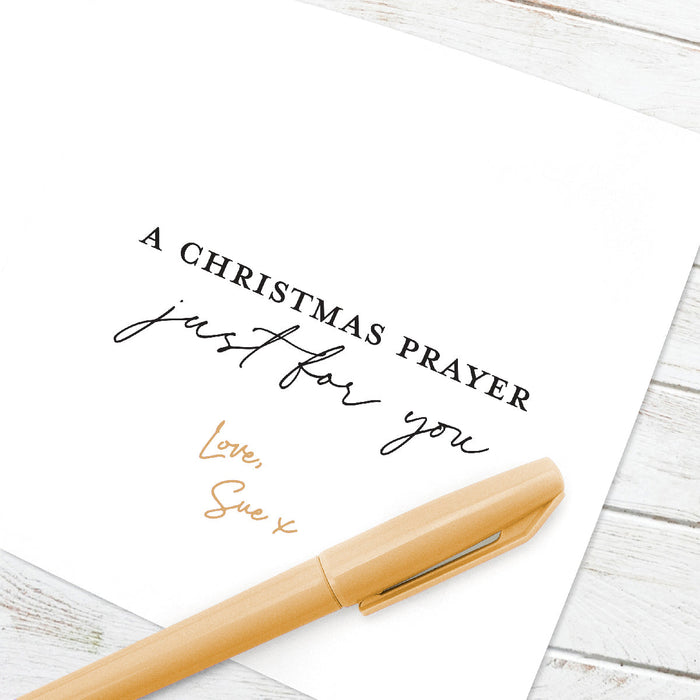 A CHRISTMAS PRAYER
just for you
Love,
Sue x